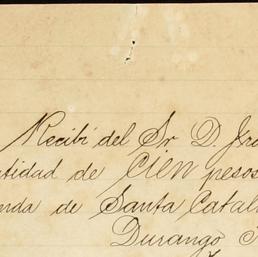 Recibí del Sr. D.
tidad de CIEN pesos
nda de Santa Catal
Durango